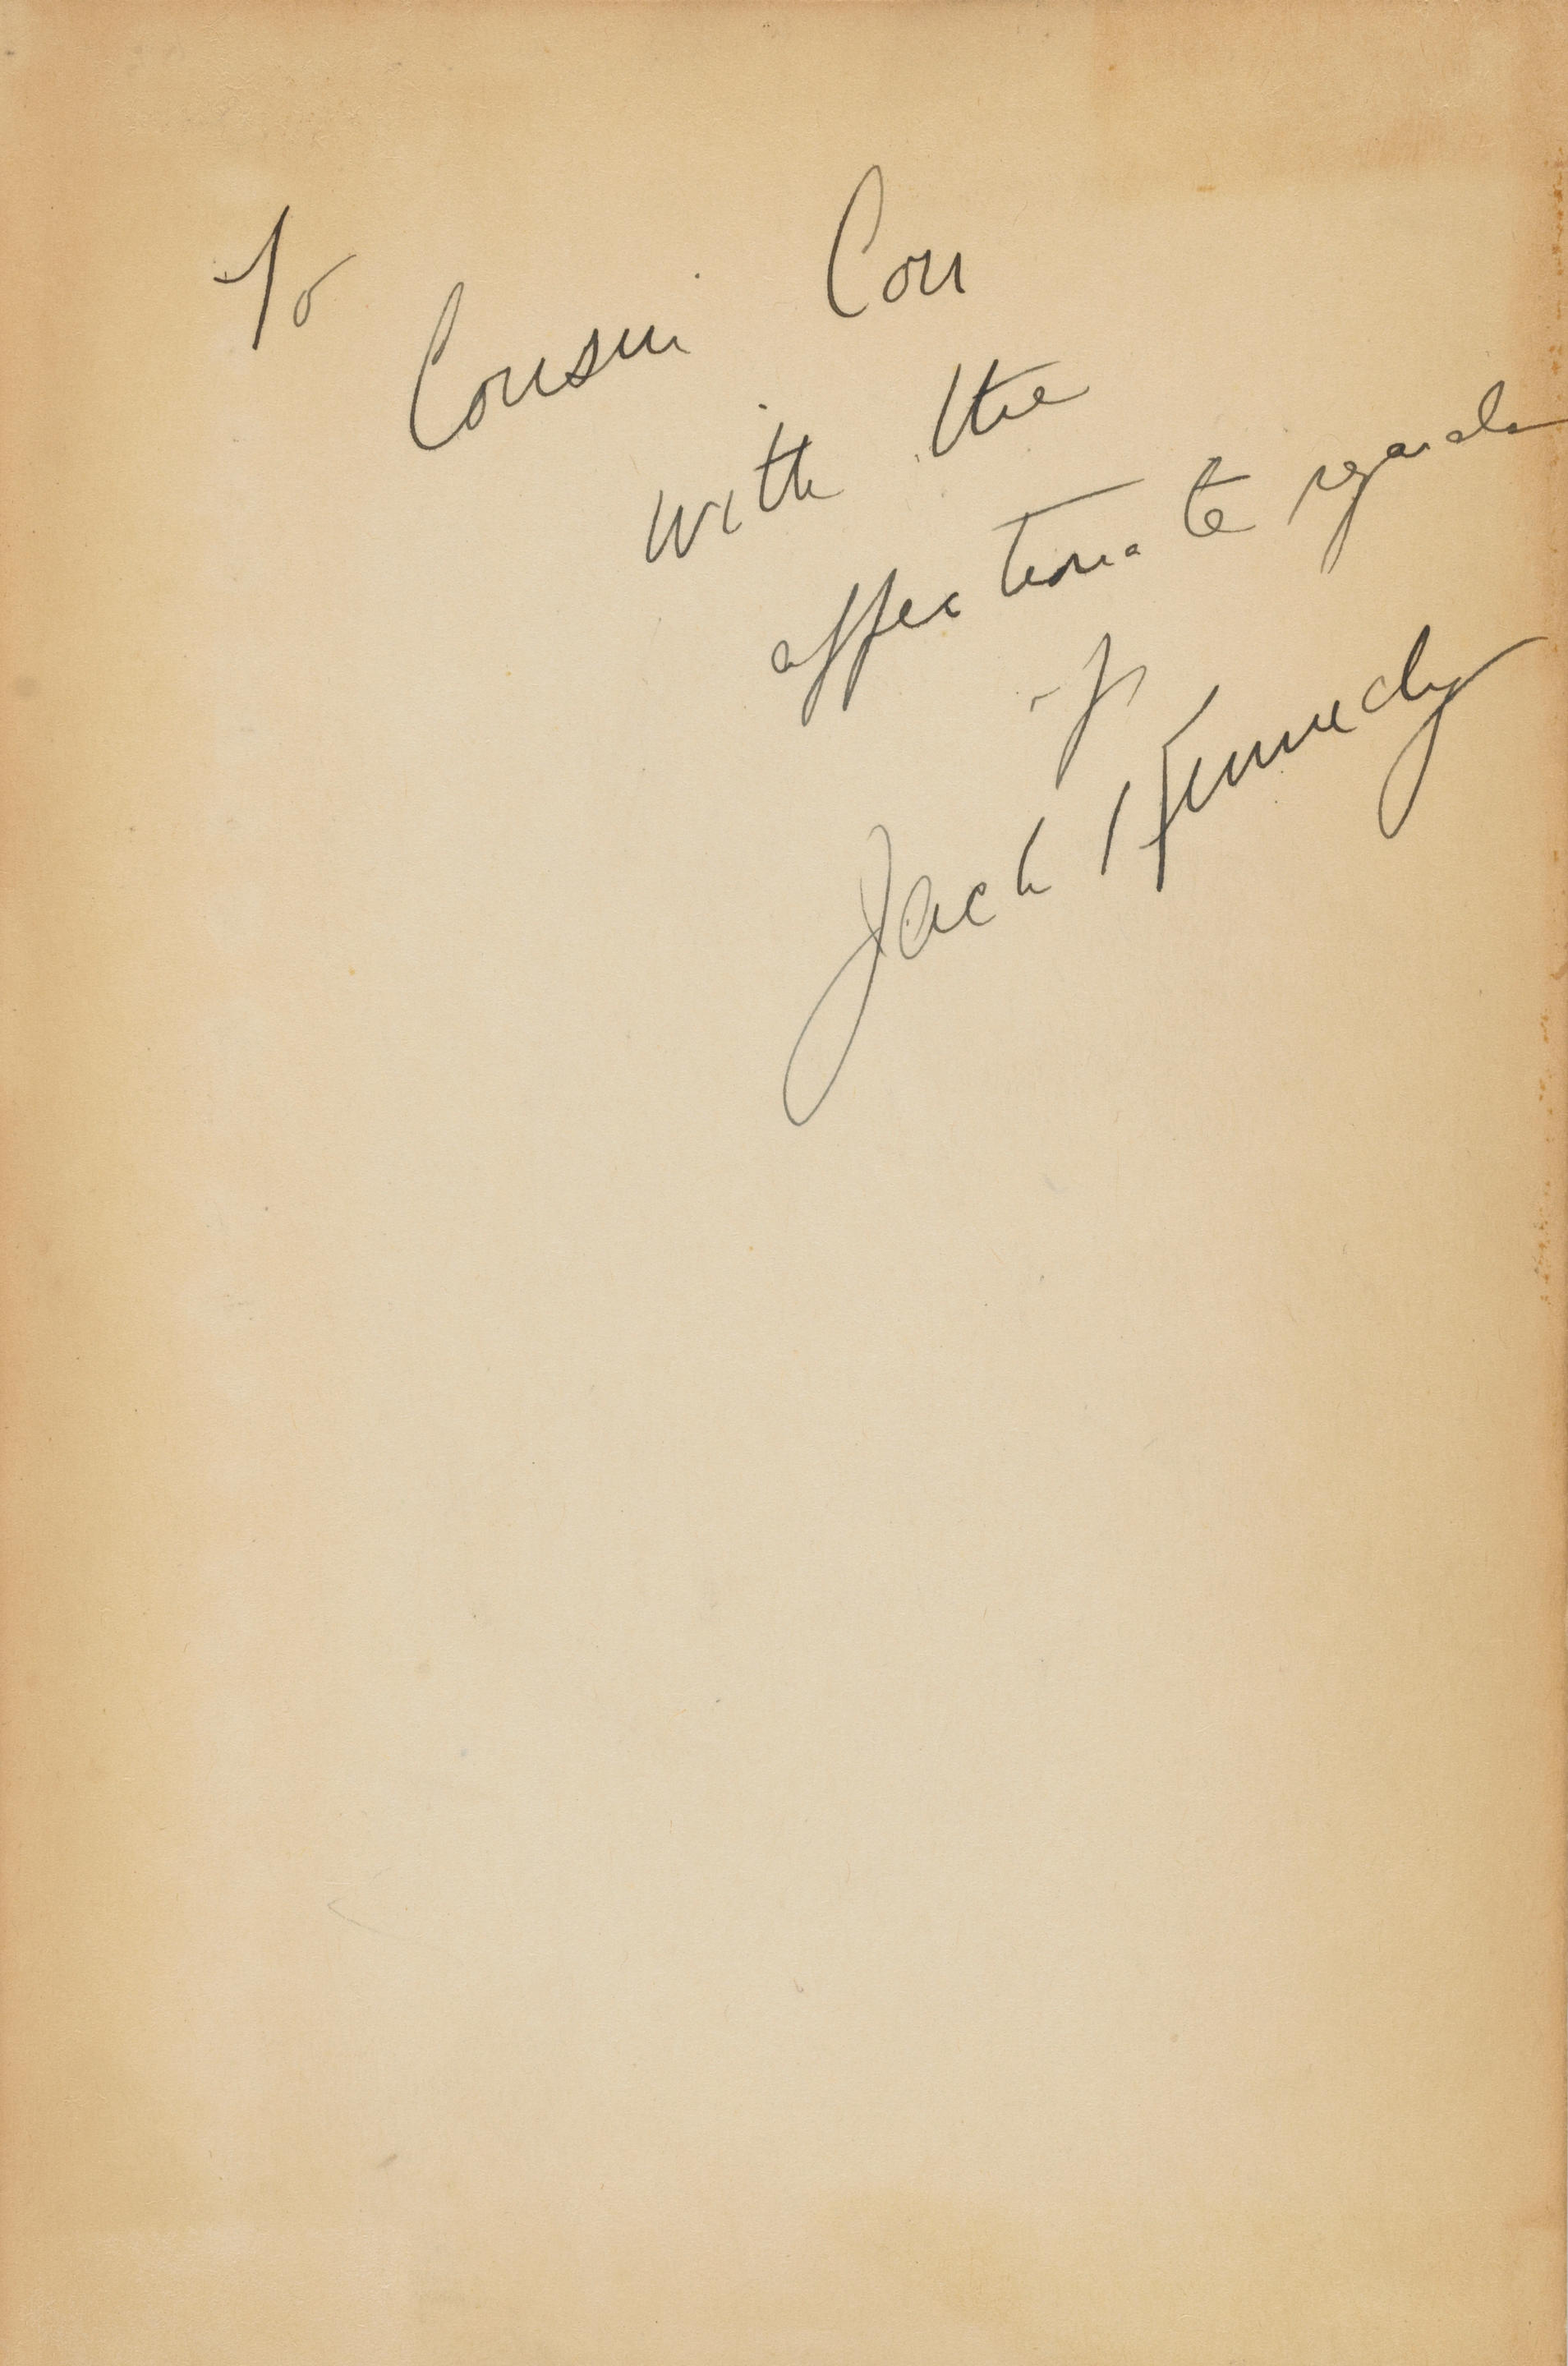 To
Cousin Con
with the
affectionate regards
of
Jack Kennedy